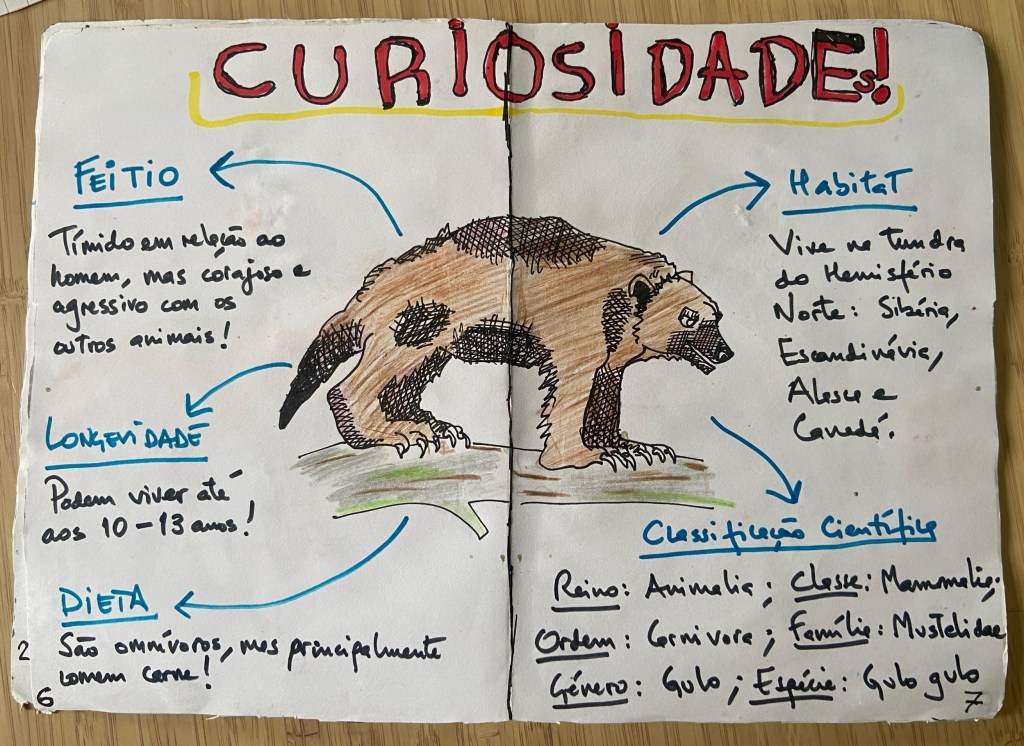 CURIOSIDADEs!
FEITIO
Tímido em relação ao
homem, mas corajoso e
agressivo com os
outros animais!
LONGEVIDADE
Podem viver até
aos 10 - 13 anos!
DIETA
São omnívoros, mas principalmente
comem carne!
2
6
Habitat
Vive na tundra
do Hemisfério
Norte: Sibéria,
Escandinávia,
Alasca e
Canadá.
Classificação Científica
Reino: Animalia; Classe: Mammalia;
Ordem: Carnivora; Família: Mustelidae
Género: Gulo; Espécie: Gulo gulo
7